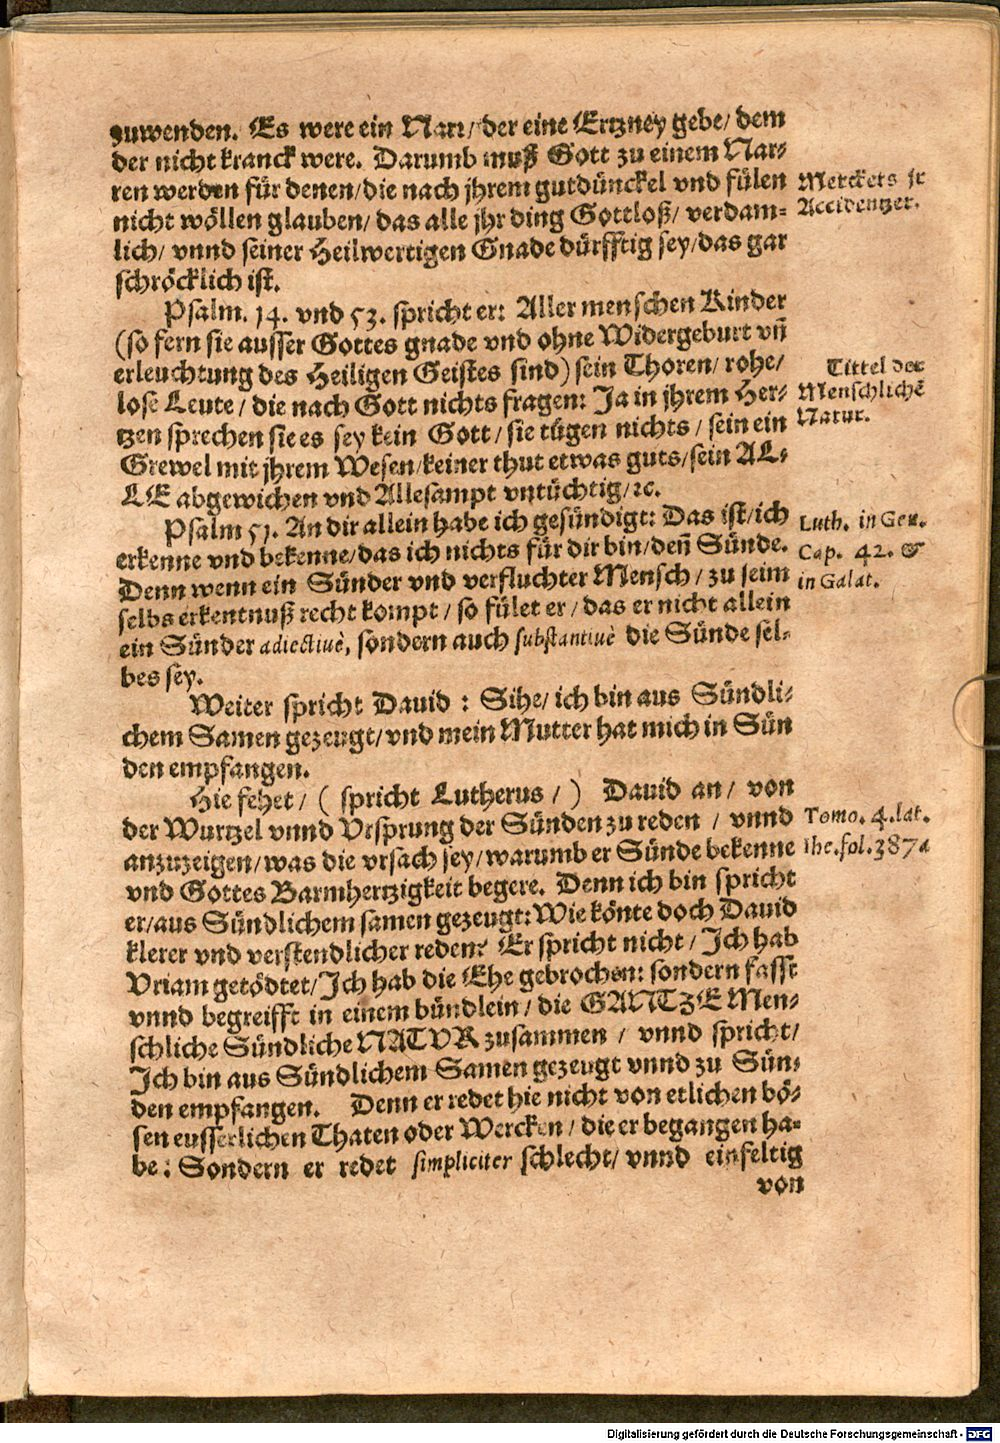 zuwenden. Es were ein Narr/ der eine Ertzney gebe/ dem
der nicht kranck were. Darumb muß Gott zu einem Nar-
ren werden für denen/ die nach jhrem gutdünckel vnd fülen
nicht wöllen glauben/ das alle jhr ding Gottloß/ verdam-
lich/ vnnd seiner Heilwertigen Gnade dürfftig sey/ das gar
schröcklich ist.
Merckets jr
Accidentzer.
Psalm. 14. vnd 53. spricht er: Aller menschen Kinder
(so fern sie ausser Gottes gnade vnd ohne Widergeburt vñ
erleuchtung des Heiligen Geistes sind) sein Thoren/ rohe/
lose Leute/ die nach Gott nichts fragen: Ja in jhrem Her-
tzen sprechen sie es sey kein Gott/ sie tügen nichts/ sein ein
Grewel mit jhrem Wesen/ keiner thut etwas guts/ sein AL-
LE abgewichen vnd Allesampt vntüchtig/ ꝛc.
Tittel der
Menschlichẽ
Natur.
Psalm 51. An dir allein habe ich gesündigt: Das ist/ ich
erkenne vnd bekenne/ das ich nichts für dir bin/ deñ Sünde.
Denn wenn ein Sünder vnd verfluchter Mensch/ zu seim
selbs erkentnuß recht kompt/ so fület er/ das er nicht allein
ein Sünder adiectiuè, sondern auch substantiuè die Sünde sel-
bes sey.
Luth. in Gen.
Cap. 42. &
in Galat.
Weiter spricht Dauid: Sihe/ ich bin aus Sündli-
chem Samen gezeugt/ vnd mein Mutter hat mich in Sün
den empfangen.
Hie fehet/ ( spricht Lutherus/ ) Dauid an/ von
der Wurtzel vnnd Vrsprung der Sünden zu reden / vnnd
anzuzeigen/ was die vrsach sey/ warumb er Sünde bekenne
vnd Gottes Barmhertzigkeit begere. Denn ich bin spricht
er/ aus Sündlichem samen gezeugt: Wie könte doch Dauid
klerer vnd verstendlicher reden? Er spricht nicht/ Ich hab
Vriam getödtet/ Ich hab die Ehe gebrochen: sondern fasst
vnnd begreifft in einem bündlein/ die GANTZE Men-
schliche Sündliche NATVR zusammen / vnnd spricht/
Ich bin aus Sündlichem Samen gezeugt vnnd zu Sün-
den empfangen. Denn er redet hie nicht von etlichen bö-
sen eusserlichen Thaten oder Wercken/ die er begangen ha-
be: Sondern er redet simpliciter schlecht/ vnnd einfeltig
von
Tomo. 4. lat.
Ihe. fol. 387 a
Digitalisierung gefördert durch die Deutsche Forschungsgemeinschaft - DFG